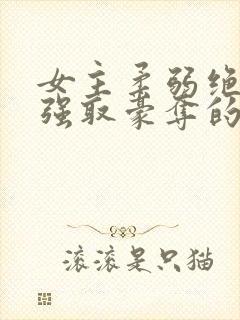 女主柔弱绝
强取豪夺的
滚滚是只猫